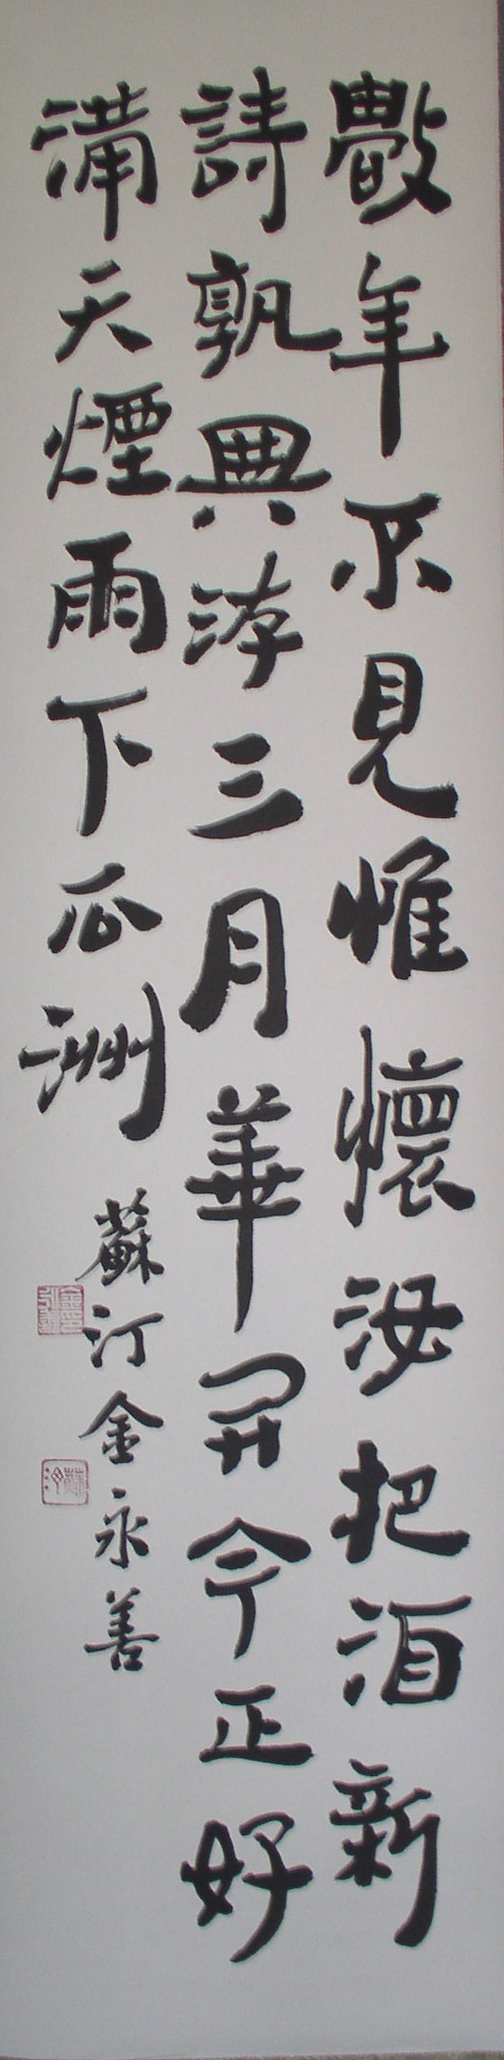 數年不見惟懷汝把酒新
詩孰與游三月華開今正好
滿天煙雨下瓜洲
蘇汀金永善